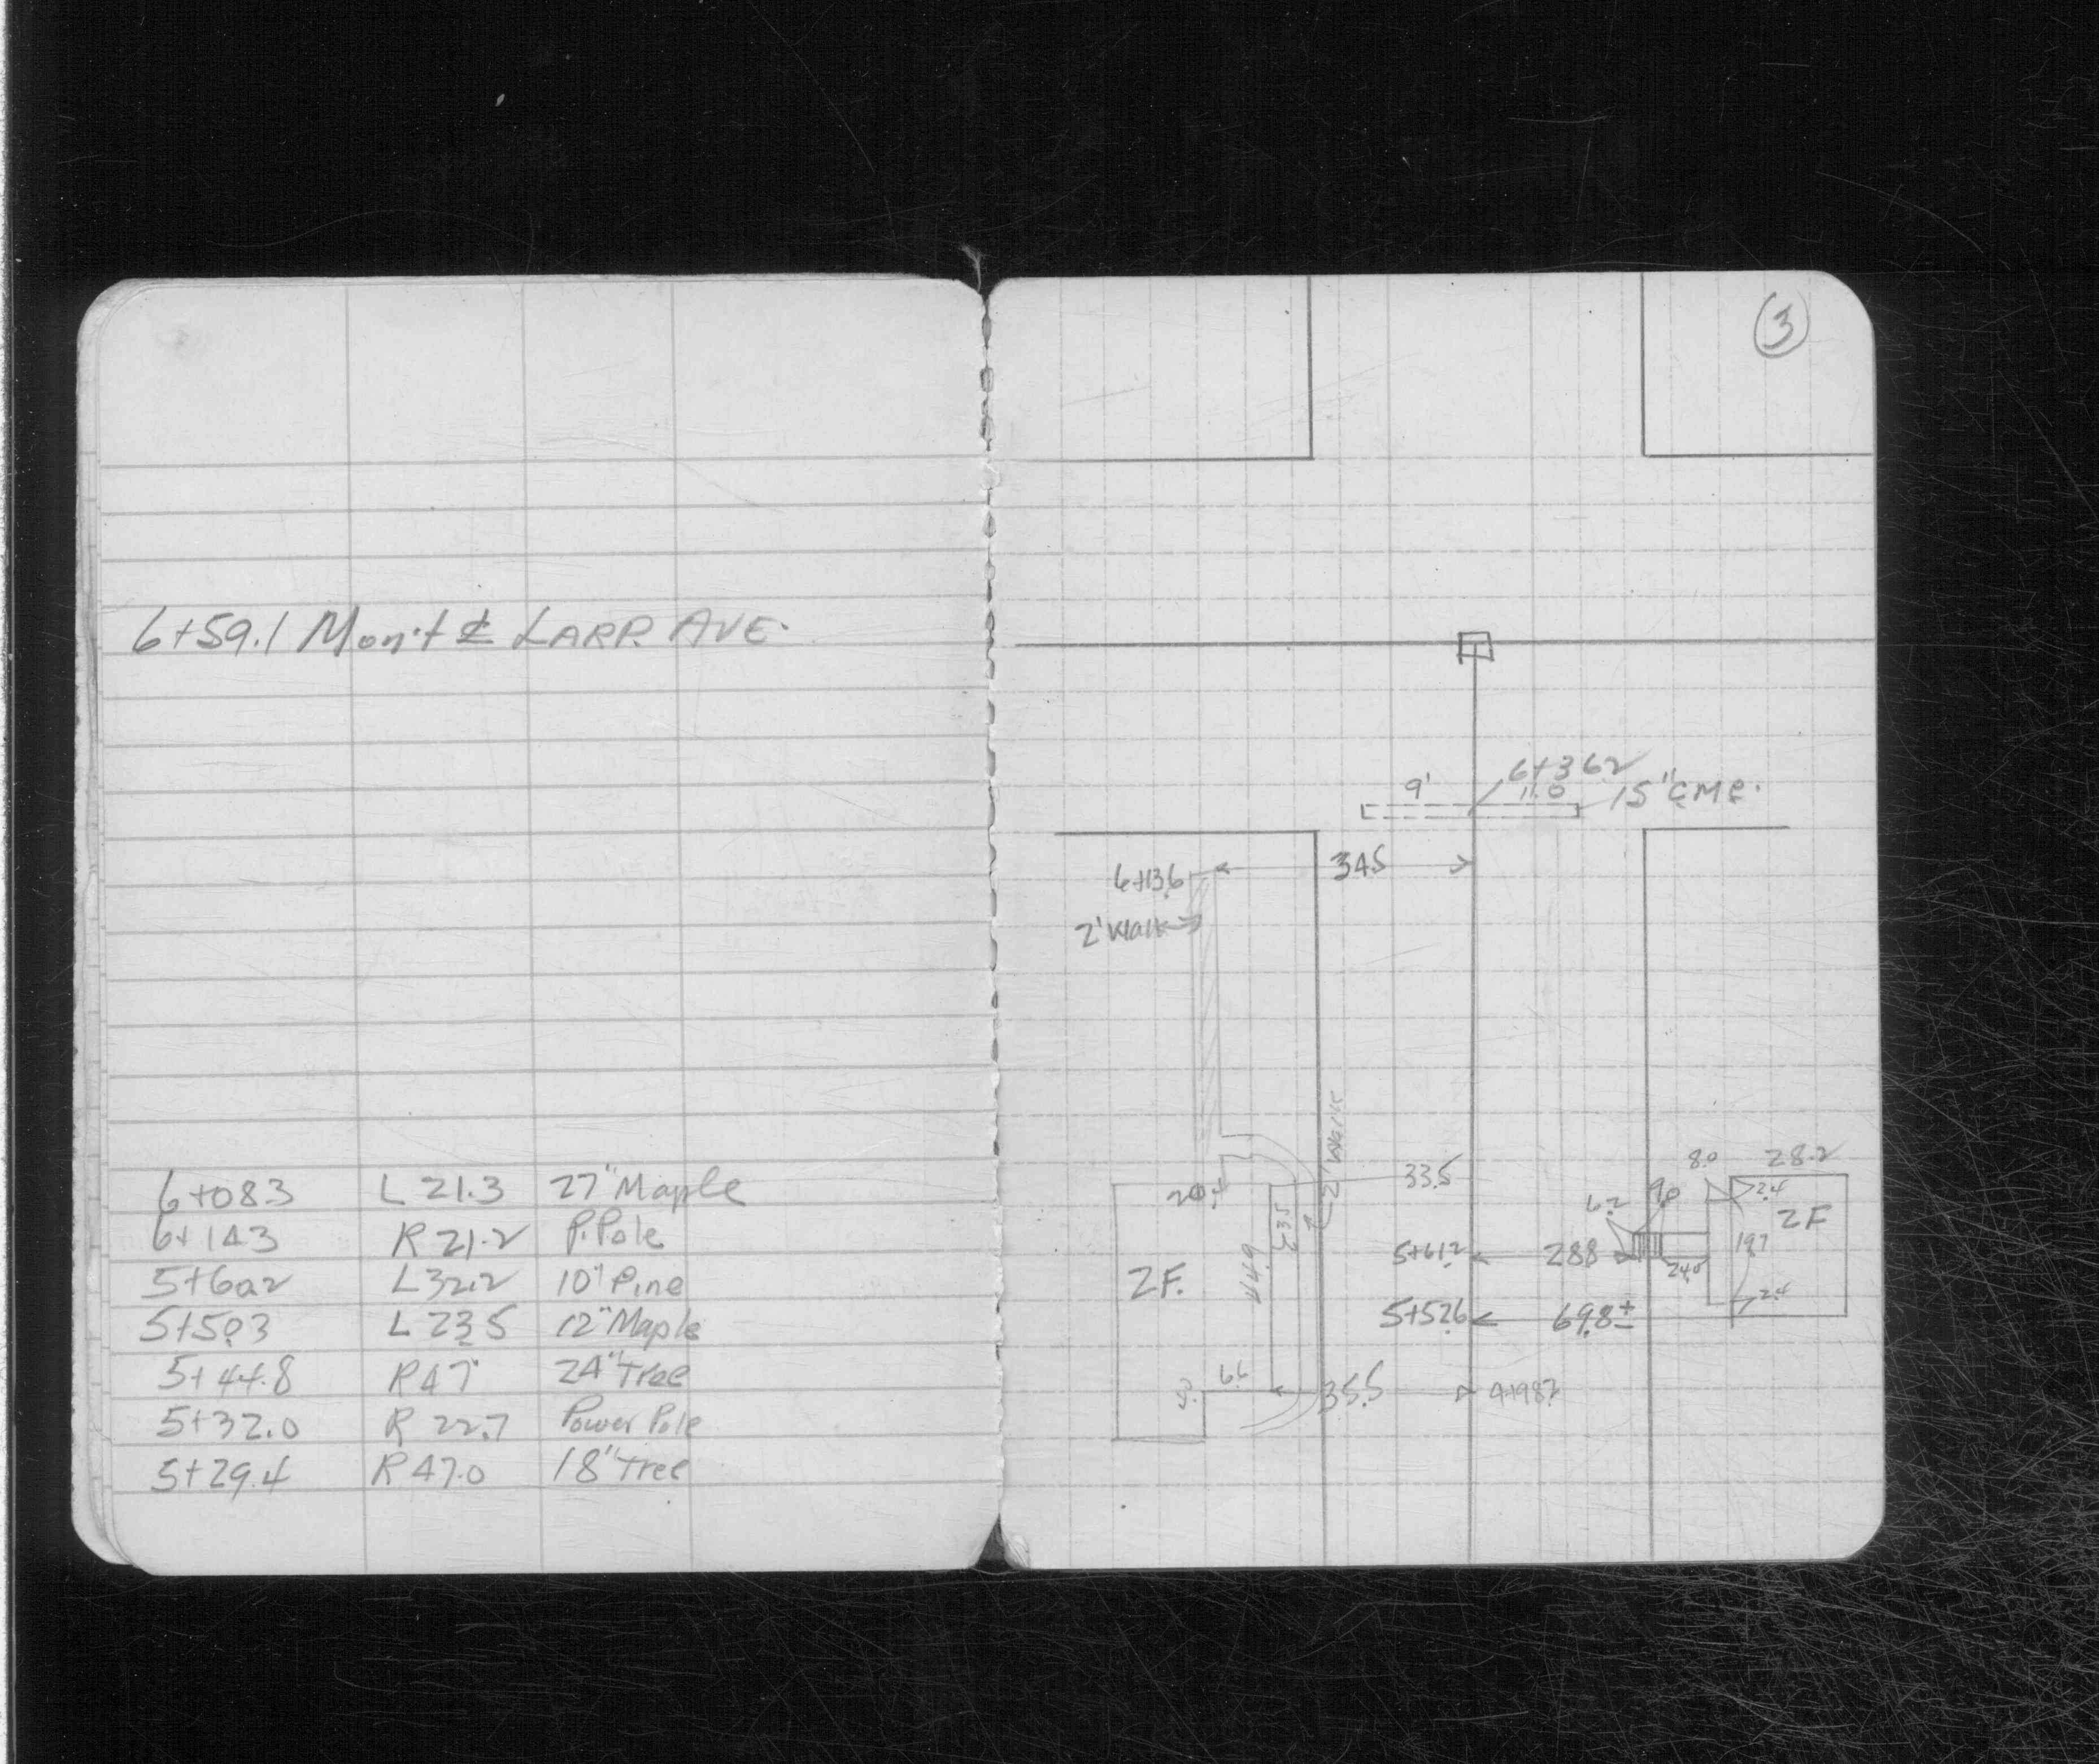 6+59.1 Mon't ℄ LARP. AVE.
6+083 L 21.3 27" Maple
6+143 R 21.2 P.Pole
5+602 L32.2 10" Pine
5+503 L 23.5 12" Maple
5+44.8 R47 24" Tree
5+32.0 R 22.7 Power Pole
5+29.4 R47.0 18" Tree
3
6+362
9' 11.0 15" CMP.
34.5
6+13.6
2' Walk
2' Walk
33.5
8.0 28.2
2.4
6.2 9.0
2F
23.5
44.9
5+61.2 288
24.0
19.7
2F.
2.4
5+52.6 69.8±
6.6
35.5 4+982